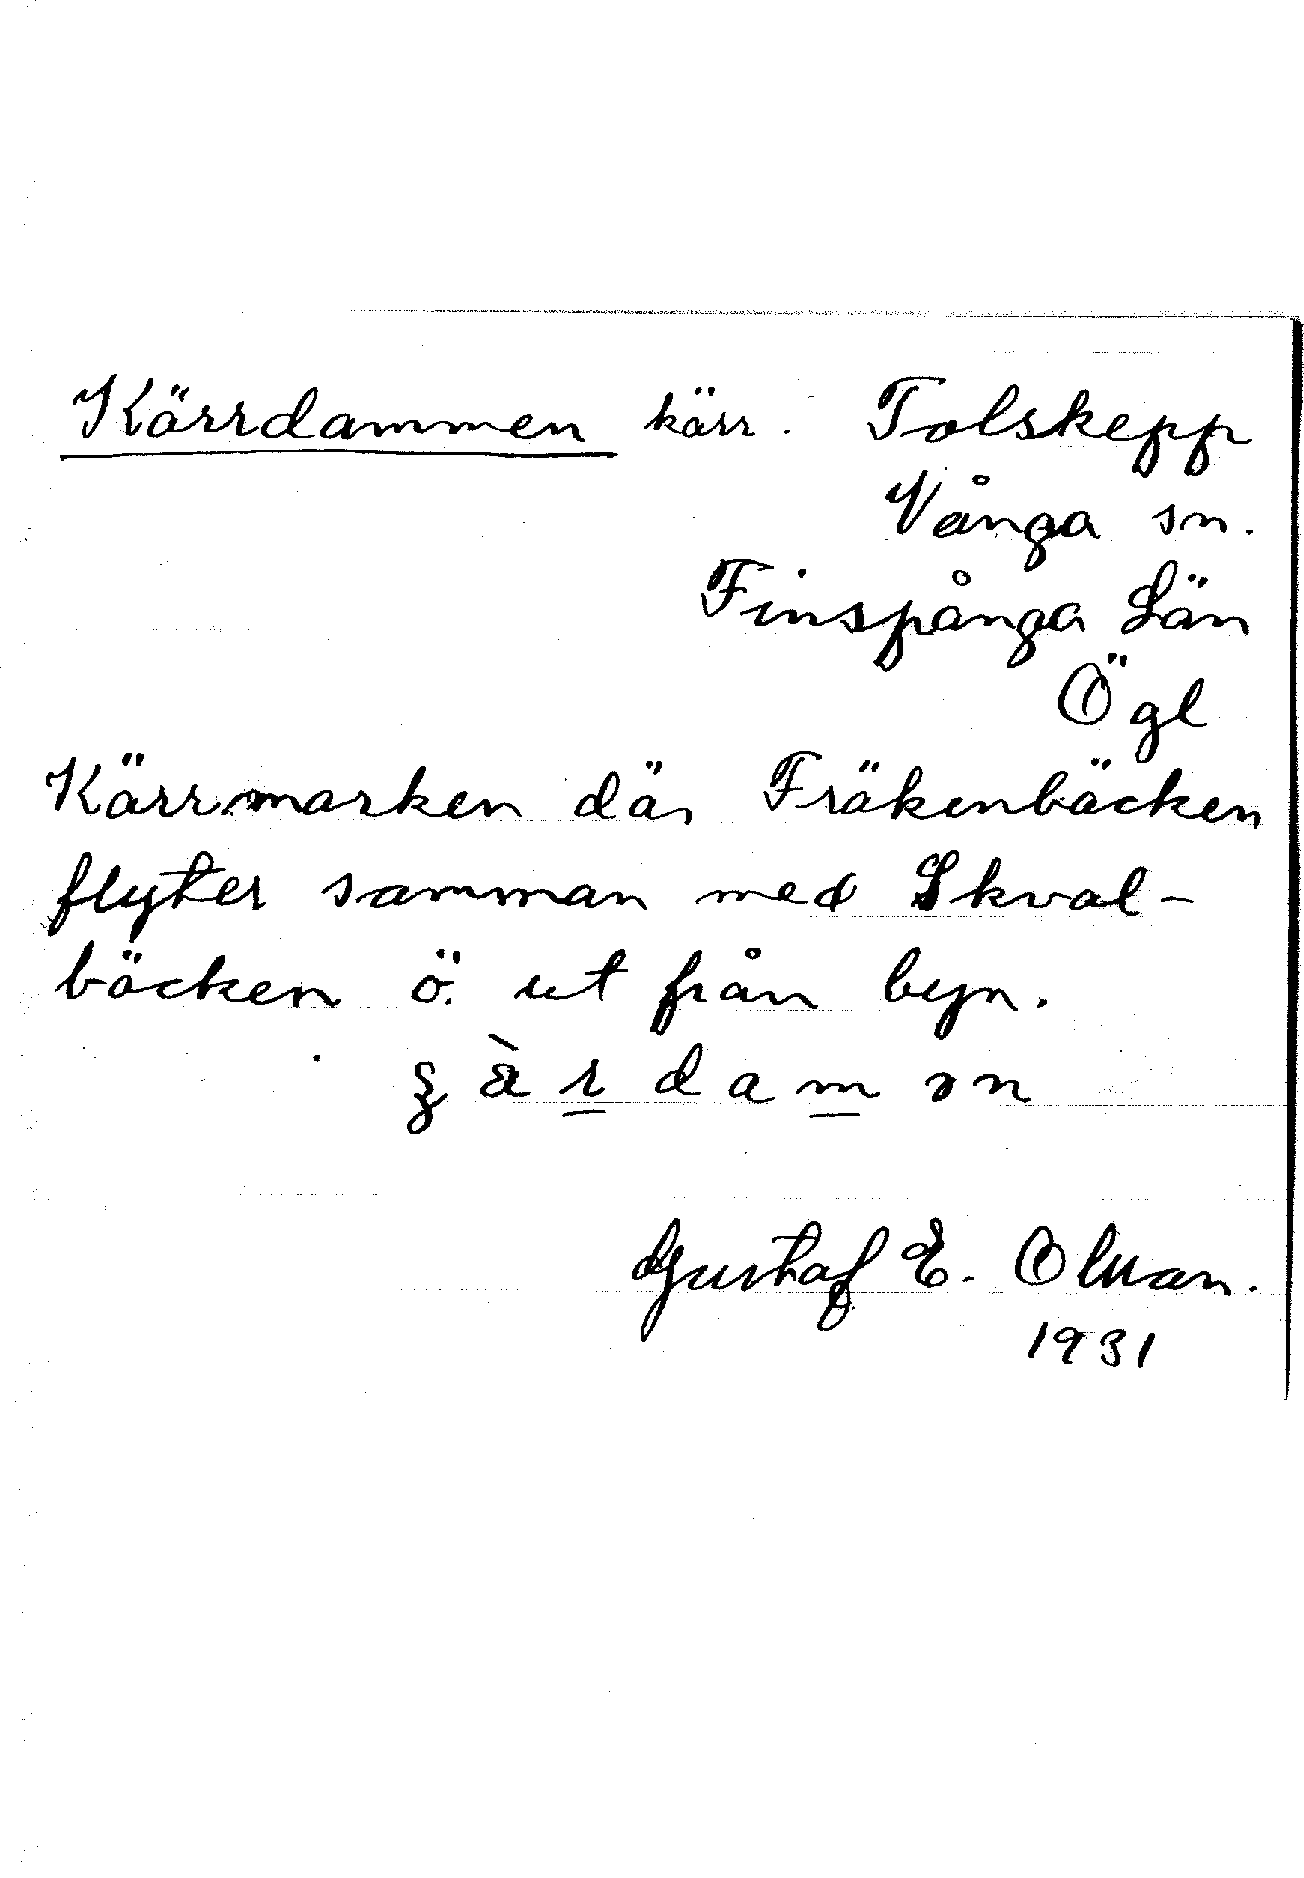 Kärrdammen kärr. Tolskepp
Vånga sn.
Finspånga Län
Ögl
Kärrmarken där Fräkenbäcken
flyter samman med Skval-
bäcken ö. ut från byn.
Gustaf E. Olman.
1931